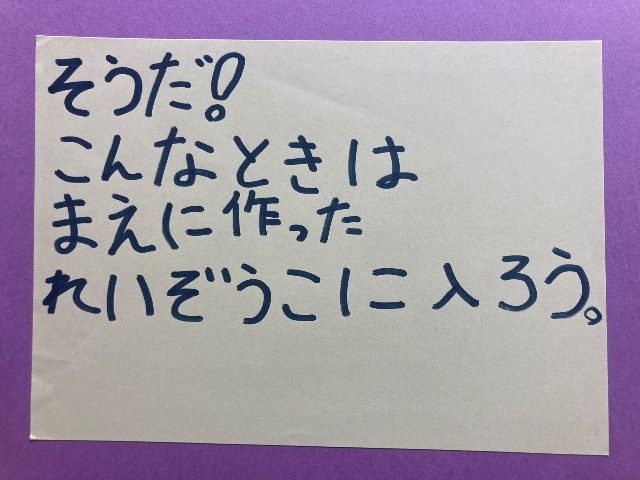 そうだ!
こんなときは
まえに作った
れいぞうこに入ろう。